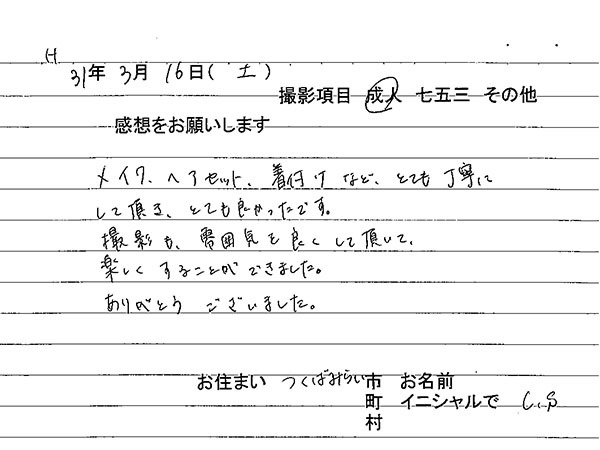 H
31年 3月 16日( 土 )
撮影項目 成人 七五三 その他
感想をお願いします
メイク、ヘアセット、着付け など、とても 丁寧に
して頂き、とても良かったです。
撮影も、雰囲気を良くして頂いて、
楽しく することができました。
ありがとう ございました。
お住まい つくばみらい 市 お名前
町 イニシャルで C.S
村